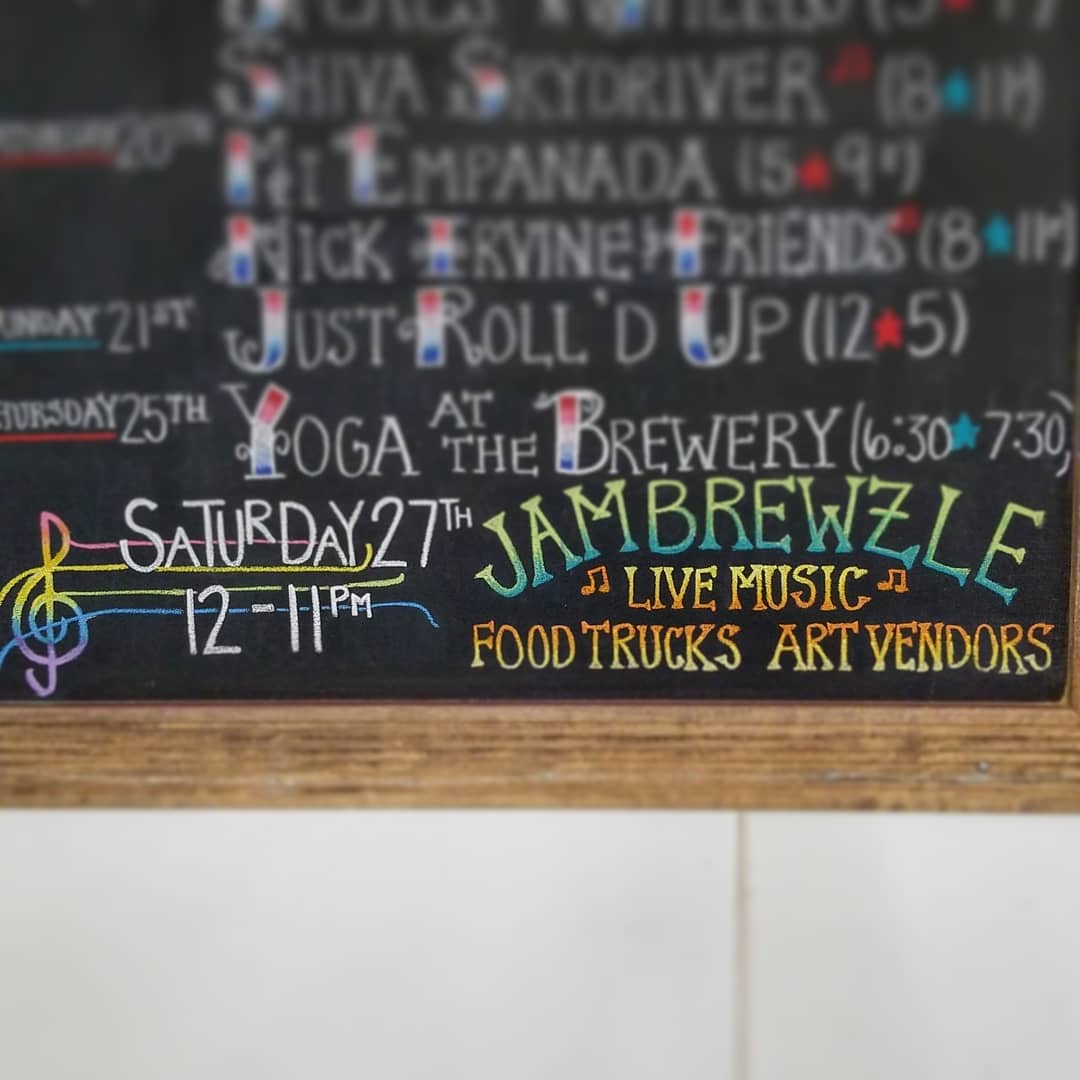 SHIVA SKYDRIVER ♫ (8★11P)
20TH MI EMPANADA (5★9P)
NICK IRVINE & FRIENDS ♫ (8★11P)
SUNDAY 21ST JUST ROLL'D UP (12★5)
THURSDAY 25TH YOGA AT THE BREWERY (6:30★7:30)
SATURDAY, 27TH JAMBREWZLE
12-11PM ♫ LIVE MUSIC ♫
FOOD TRUCKS ART VENDORS